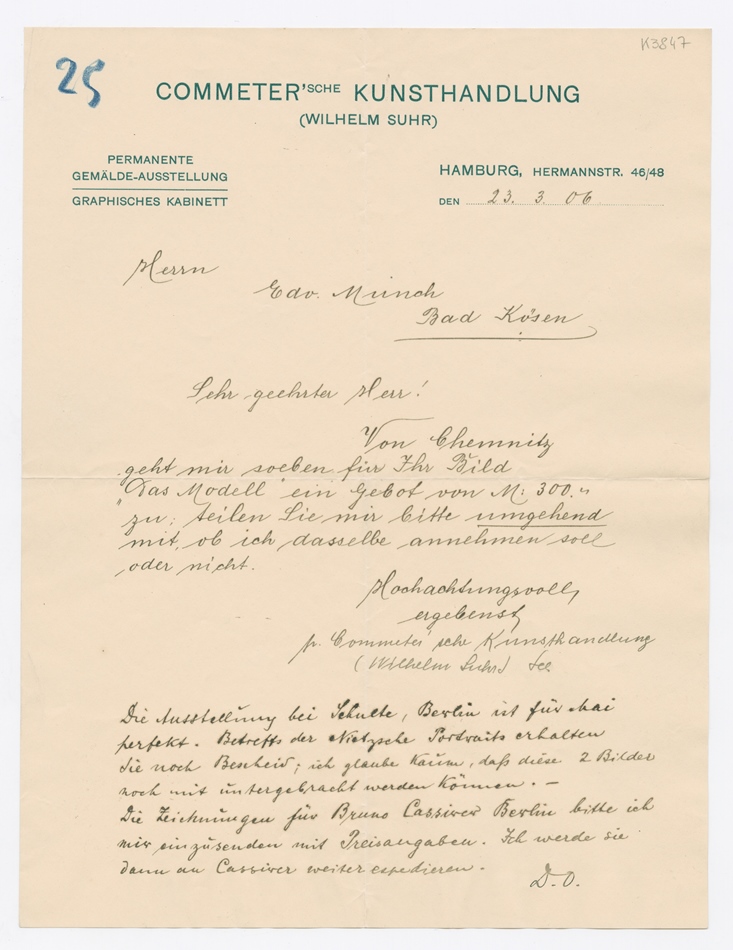 K3847
25
COMMETER'SCHE KUNSTHANDLUNG
(WILHELM SUHR)
PERMANENTE
GEMÄLDE-AUSSTELLUNG
GRAPHISCHES KABINETT
HAMBURG, HERMANNSTR. 46/48
DEN 23. 3. 06
Herrn
Edv. Münch
Bad Kösen
Sehr geehrter Herr!
Von Chemnitz
geht mir soeben für Ihr Bild
"Das Modell" ein Gebot von M: 300.-
zu; teilen Sie mir bitte umgehend
mit, ob ich dasselbe annehmen soll
oder nicht.
Hochachtungsvoll,
ergebenst
p. Commeter'sche Kunsthandlung
(Wilhelm Suhr)
Die Ausstellung bei Schulte, Berlin ist für Mai
perfekt. Betreffs der Nietzsche Portraits erhalten
Sie noch Bescheid; ich glaube kaum, daß diese 2 Bilder
noch mit untergebracht werden können. –
Die Zeichnungen für Bruno Cassirer Berlin bitte ich
mir einzusenden mit Preisangaben. Ich werde sie
dann an Cassirer weiter expedieren.
D. O.